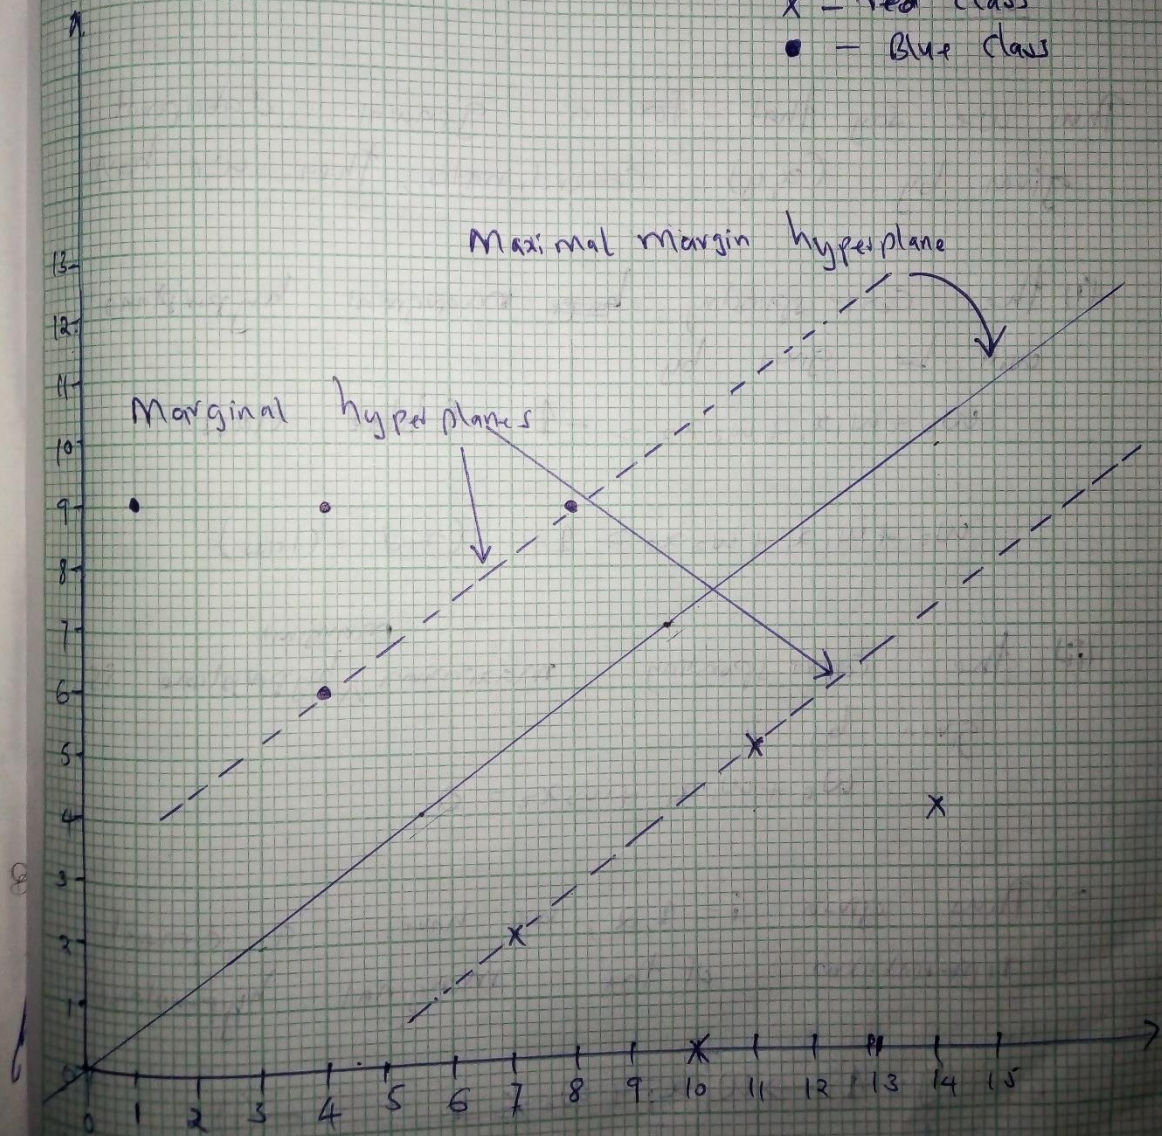 x – red class
• – Blue class
Maximal margin hyperplane
13
12
11
Marginal hyperplanes
10
9
8
7
6
5
4
3
2
1
0
0 1 2 3 4 5 6 7 8 9 10 11 12 13 14 15